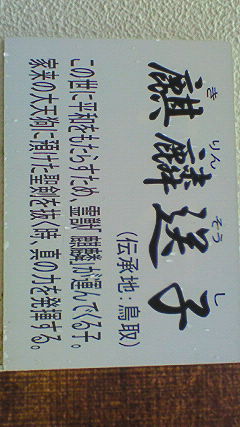 麒麟送子
きりんそうし
(伝承地:鳥取)
この世に平和をもたらすため、霊獣「麒麟」が運んでくる子。
家来の大天狗に預けた聖剣を抜く時、真の力を発揮する。